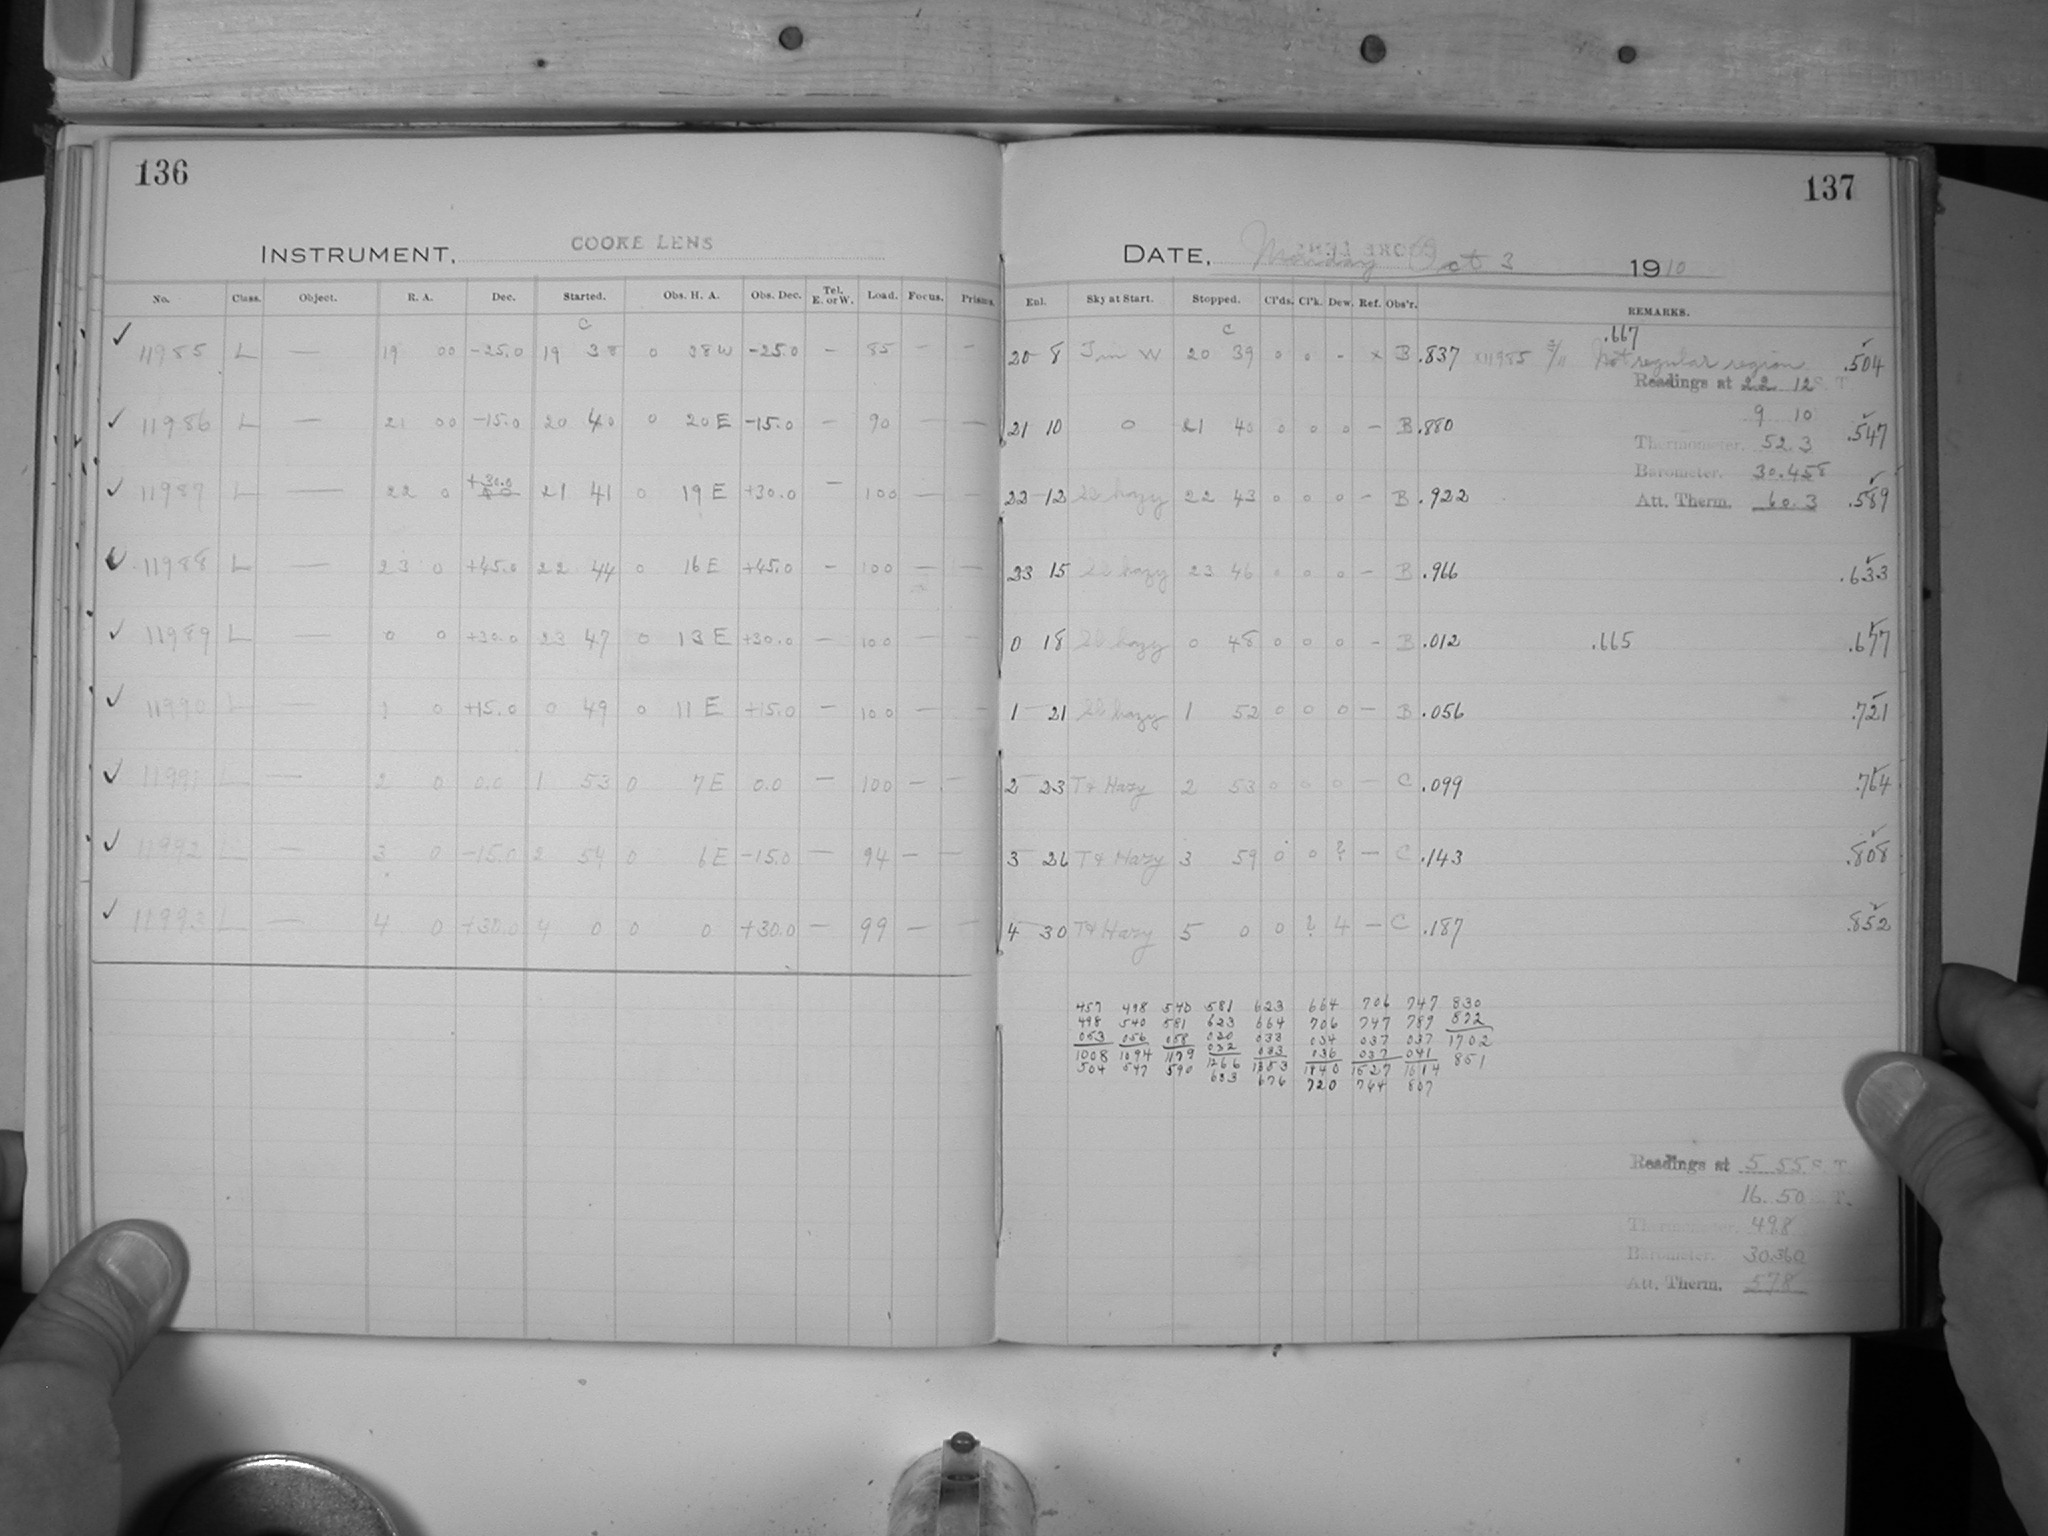 136
INSTRUMENT, COOKE LENS
No. Class. Object. R. A. Dec. Started. Obs. H. A. Obs. Dec. Tel. E. or W. Load. Focus. Prisms.
C
✓ 11985 L — 19 00 -25.0 19 38 0 38W -25.0 — 85 — —
✓ 11986 L — 21 00 -15.0 20 40 0 20 E -15.0 — 90 — —
✓ 11987 L — 22 0 +30.0 21 41 0 19 E +30.0 — 100 — —
✓ 11988 L — 23 0 +45.0 22 44 0 16 E +45.0 — 100 — —
✓ 11989 L — 0 0 +30.0 23 47 0 13 E +30.0 — 100 — —
✓ 11990 L — 1 0 +15.0 0 49 0 11 E +15.0 — 100 — —
✓ 11991 L — 2 0 0.0 1 53 0 7 E 0.0 — 100 — —
✓ 11992 L — 3 0 -15.0 2 54 0 6 E -15.0 — 94 — —
✓ 11993 L — 4 0 +30.0 4 0 0 0 +30.0 — 99 — —
137
DATE, Monday Oct 3 1910
Enl. Sky at Start. Stopped. Cl'ds. Cl'k. Dew. Ref. Obs'r. REMARKS.
C .667
20 8 W 20 39 0 0 - x B .837 11985 Not regular region .504
Readings at 22 12 S. T.
9 10
21 10 0 21 40 0 0 0 — B .880 .547
Thermometer. 52.3
Barometer. 30.458
22 12 Sl hazy 22 43 0 0 0 — B .922 Att. Therm. 60.3 .589
23 15 Sl hazy 23 46 0 0 0 — B .966 .633
0 18 Sl hazy 0 48 0 0 0 — B .012 .665 .677
1 21 Sl hazy 1 52 0 0 0 — B .056 .721
2 23 Hazy 2 53 0 0 0 — C .099 .764
3 26 Hazy 3 59 0 0 ? — C .143 .808
4 30 Hazy 5 0 0 ? 4 — C .187 .852
457 498 540 581 623 664 706 747 830
498 540 581 623 664 706 747 789 872
053 056 058 030 033 034 037 037 1702
1008 1094 1179 032 033 036 037 041 851
504 547 590 1266 1353 1440 1527 1614
633 676 720 764 807
Readings at 5 55 S. T.
16 50 T.
Thermometer. 49.8
Barometer. 30.360
Att. Therm. 57.8